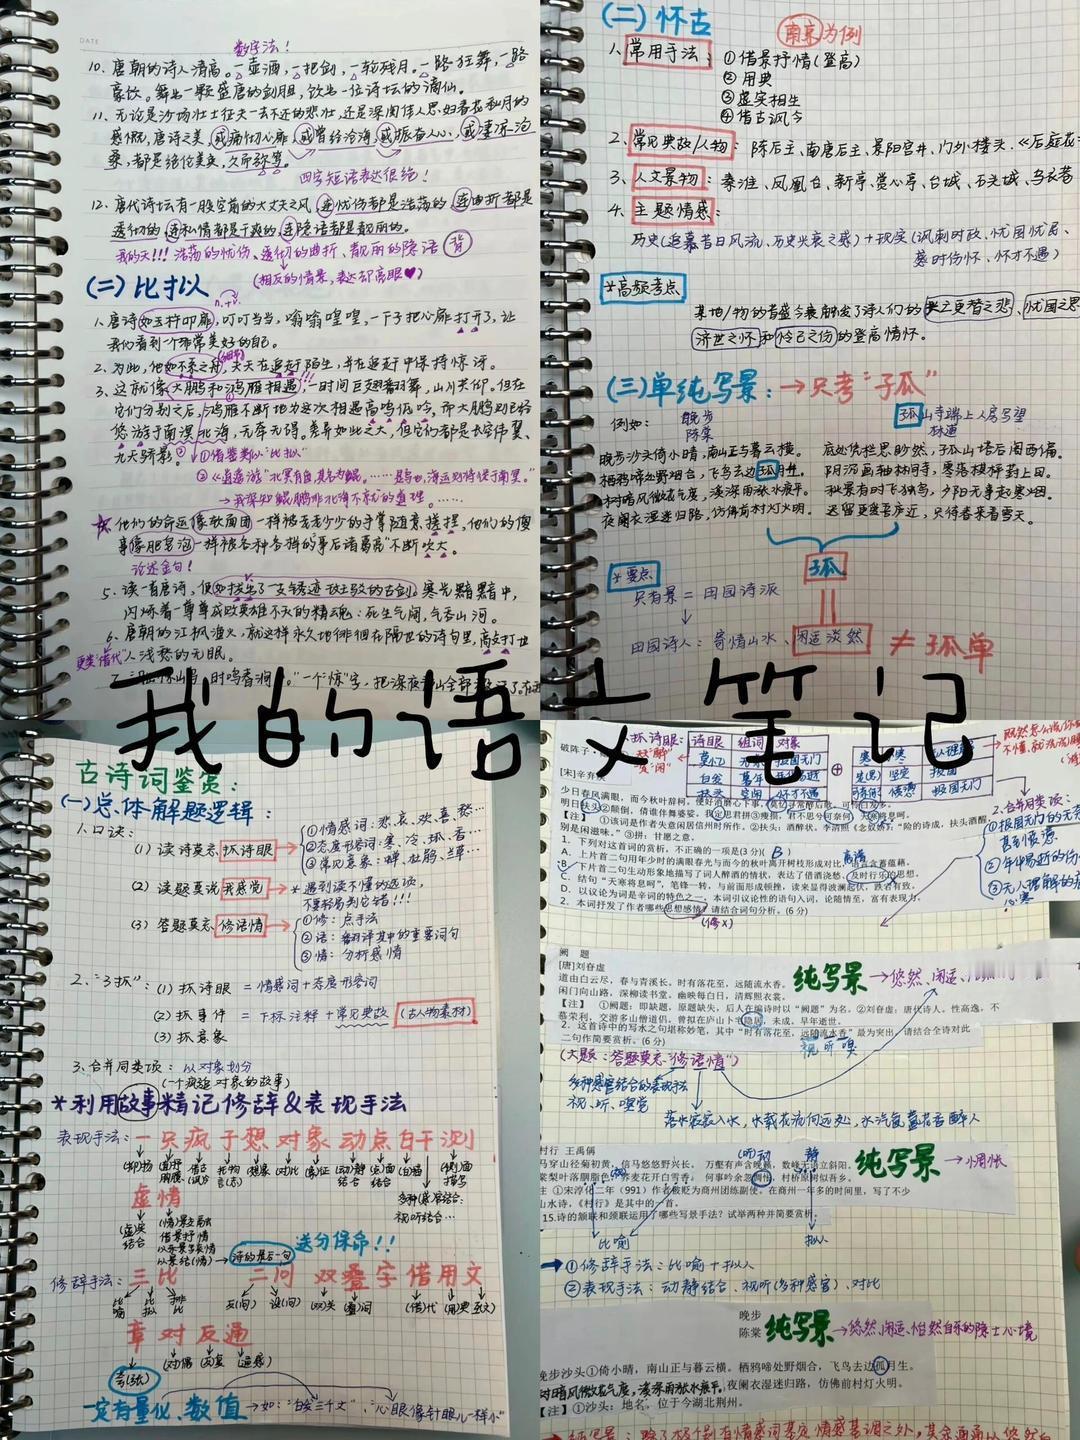 DATE
数字法！
10、唐朝的诗人清高。一壶酒，一把剑，一轮残月。一路狂舞，一路
豪饮。舞出一颗盛唐的剑胆，饮出一位诗坛的谪仙。
11、无论是沙场壮士征夫一去不还的悲壮，还是深闺佳人思妇春花秋月的
感慨，唐诗之美，或痛彻心扉，或曾经沧海，或振奋人心，或凄凉沧
桑，都是绝伦美奂，久而弥笃。
四字短语表达很绝！
12、唐代诗坛有一股空前的大丈夫之风，连忧伤都是浩荡的，连曲折都是
透彻的，连私情都是干爽的，连隐语都是靓丽的。
我的天!!! 浩荡的忧伤、透彻的曲折、靓丽的隐语 背
(相反的情景，表达却亮眼♥)
(二) 比拟
1、唐诗如玉杵叩扉，叮叮当当，嗡嗡喤喤，一下子把心扉打开了，让
我们看到一个非常美好的自己。
2、为此，他如不系之舟，天天在追赶陌生，并在追赶中保持惊讶。
3、这就像大鹏和鸿雁相遇，一时间巨翅翻舞，山川共仰。但在
它们分别之后，鸿雁不断地为这次相遇高鸣低吟，而大鹏则已经
悠游于南溟北海，无牵无碍。差异如此之大，但它们都是长空伟翼、
九天骄影。
①借鉴类似"比拟"
他们的命运像软面团一样被老老少少的手掌随意搓捏，他们的傻
事像肥皂泡一样被各种各样的"事后诸葛亮"不断吹大。
论述金句！
5、读一首唐诗，便如拔出了一支锈迹斑驳的古剑。寒光黯黯中，
闪烁着一尊尊成败英雄不灭的精魂：死生气阔，气吞山河。
6、唐朝的江枫渔火，就这样永久地徘徊在隔世的诗句里，敲打世
更类"借代" 人浅愁的无眠。
(二) 怀古
南京为例
1、常用手法：①借景抒情(登高)
②用典
③虚实相生
④借古讽今
2、常见典故/人物：陈后主、南唐后主、景阳宫井、门外楼头、《后庭花
3、人文景物：秦淮、凤凰台、新亭、赏心亭、台城、石头城、乌衣巷
4、主题情感：
历史(追慕昔日风流、历史兴衰之感)＋现实(讽刺时政、忧国忧民、
感时伤怀、怀才不遇)
*高频考点
某地/物的昔盛今衰触发了诗人们的兴亡更替之悲、忧国之思
济世之怀和怜己之伤的登高情怀。
(三)单纯写景：→只考"孤"
例如：
晚步
陈棠
晚步沙头倚小晴，南山正与暮云横。
栖鸦啼处野烟合，飞鸟去边孤月生。
对暗风微花气度，浅深雨涨水痕平。
夜阑衣湿迷归路，仿佛前村灯火明。
孤山寺端上人房写望
林逋
底处凭栏思眇然，孤山塔后阁西偏。
阴沉画轴林间寺，零落棋枰葑上田。
秋景有时飞独鸟，夕阳无事起寒烟。
迟留更爱吾庐近，只待春来看雪天。
孤
*要点
只有景＝田园诗派
田园诗人：寄情山水、闲适淡然 ≠ 孤单
我的语文笔记
古诗词鉴赏：
(一)总、体解题逻辑：
1、口诀：
(1) 读诗莫忘抓诗眼
①情感词：悲、哀、欢、喜、愁…
②态度形容词：寒、冷、孤、苦…
③常见意象：蝉、杜鹃、兰草…
(2) 读题莫说我感觉
*遇到读不懂的选项，
不要轻易判它错!!!
(3) 答题莫忘修语情
①修：点手法
②语：翻译其中的重要词句
③情：分析感情
2、"3抓"：(1) 抓诗眼＝情感词＋态度形容词
(2) 抓事件＝下标注释＋常见典故(古人物素材)
(3) 抓意象
3、合并同类项：以对象划分
(一个疯追对象的故事)
*利用故事精记修辞&表现手法
表现手法：一只疯子想对象动点白干测
虚情
多种(感)官结合：
视听结合…
(虚)实结合
(情)景交融
借景抒情
以乐景写哀情
以景结(情)→诗的最后一句 送分保命！！
修辞手法：三比 二问 双叠字借用文
比喻 比拟 排比 反(问) 设(问) (双)关 (叠)词 (借)代 (用)典 (互文)
章对反通
夸(张) (对)偶 (反)复 (通感)
一定有量化、数值→如："白发三千丈"、"心眼像针眼儿一样小"
抓诗眼：
诗眼 组词 对象
[宋]辛弃疾
少日春风满眼，而今秋叶辞柯。便好消磨心下事，莫忆寻常醉后歌。可怜白发多。
明日扶头颠倒，倩谁伴舞婆娑。我定思君拼③瘦损，君不思兮可奈何。天寒将息呵。
【注】①该词是作者失意闲居信州时所作。②扶头：酒醉状。李清照《念奴娇》："险韵诗成，扶头酒醒，
别是闲滋味。"③拼：甘愿之意。
1. 下列对这首词的赏析，不正确的一项是(3分)( B )
A. 上片首二句用年少时的满眼春光与而今的秋叶离开树枝形成对比，语言含蓄蕴藉。
B. 下片首二句生动形象地描写了词人醉酒的情状，表达了借酒浇愁、及时行乐的思想。
C. 结句"天寒将息呵"，笔锋一转，与前面形成顿挫，读来显得波澜起伏，跌宕有致。
D. 以议论为词是辛词的特色之一，本词引议论性的语句入词，论随情至，富有表现力。
2. 本词抒发了作者哪些思想感情？请结合词句分析。(6分)
(修×)
2.合并同类项：
①报国无门的无奈
阙 题
[唐]刘眘虚
道由白云尽，春与青溪长。时有落花至，远随流水香。
闲门向山路，深柳读书堂。幽映每白日，清辉照衣裳。
【注】①阙题：即缺题，原题缺失，后人在编诗时以"阙题"为名。②刘眘虚：唐代诗人。性高逸，不
慕荣利，交游多山僧道侣。曾拟在庐山卜宅隐居，未成，早年逝世。
2. 这首诗中的写水之句堪称妙笔，其中"时有落花至，远随流水香"最为突出，请结合全诗对此
二句作简要赏析。(6分)
视 听 嗅
纯写景→悠然、闲适、
(大题：答题莫忘"修语情")
多种感官结合的表现手法
视、听、嗅觉
落水寂寂入水，水载花流向远处，水汽氤氲花香醉人
村行 王禹偁
马穿山径菊初黄，信马悠悠野兴长。万壑有声含晚籁，数峰无语立斜阳。
棠梨叶落胭脂色，荞麦花开白雪香。何事吟余忽惆怅，村桥原树似吾乡。
注 ①宋淳化二年（991）作者被贬为商州团练副使。在商州一年多的时间里，写了不少
山水诗，《村行》是其中的一首。
15.诗的颔联和颈联运用了哪些写景手法？试举两种并简要赏析。
(听)动 静
纯写景→惆怅
比喻 拟人
→①修辞手法：比喻＋拟人
②表现手法：动静结合、视听(多种感官)、对比
晚步
陈棠 纯写景→悠然、闲适、怡然自乐的隐士心境
晚步沙头①倚小晴，南山正与暮云横。栖鸦啼处野烟合，飞鸟去边孤月生。
对暗风微花气度，浅深雨涨水痕平。夜阑衣湿迷归路，仿佛前村灯火明。
【注】①沙头：地名，位于今湖北荆州。